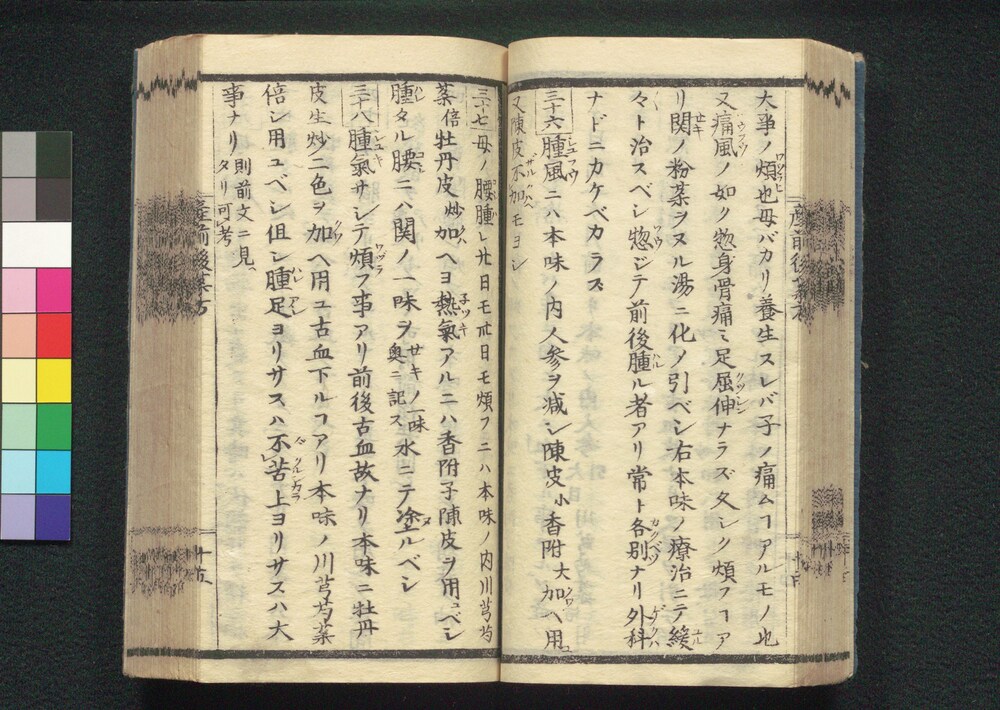 大事ノ煩也母バカリ養生スレバ子ノ痛ムヿアルモノ也
又痛風ノ如ク惣身骨痛ミ足屈伸ナラズ久シク煩フヿア
リ関ノ粉薬ヲヌル湯ニ化ノ引ベシ右本味ノ療治ニテ緩
々ト治スベシ惣ジテ前後腫ル者アリ常ト各別ナリ外科
ナドニカケベカラズ
三十六腫風ニハ本味ノ内人参ヲ減シ陳皮小香附大加ヘ用
又陳皮不加モヨシ
三十七母ノ腰腫レ廿日モ卅日モ煩フニハ本味ノ内川芎芍
薬倍牡丹皮炒加ヘヨ熱氣アルニハ香附子陳皮ヲ用ユベシ
腫タル腰ニハ関ノ一味ヲ奥ニ記ス水ニテ塗ルベシ
三十八腫氣サシテ煩フ事アリ前後古血故ナリ本味ニ牡丹
皮生炒二色ヲ加ヘ用ユ古血下ルヿアリ本味ノ川芎芍薬
倍シ用ユベシ但シ腫足ヨリサスハ不苦上ヨリサスハ大
事ナリ則前文ニ見ヘタリ可考